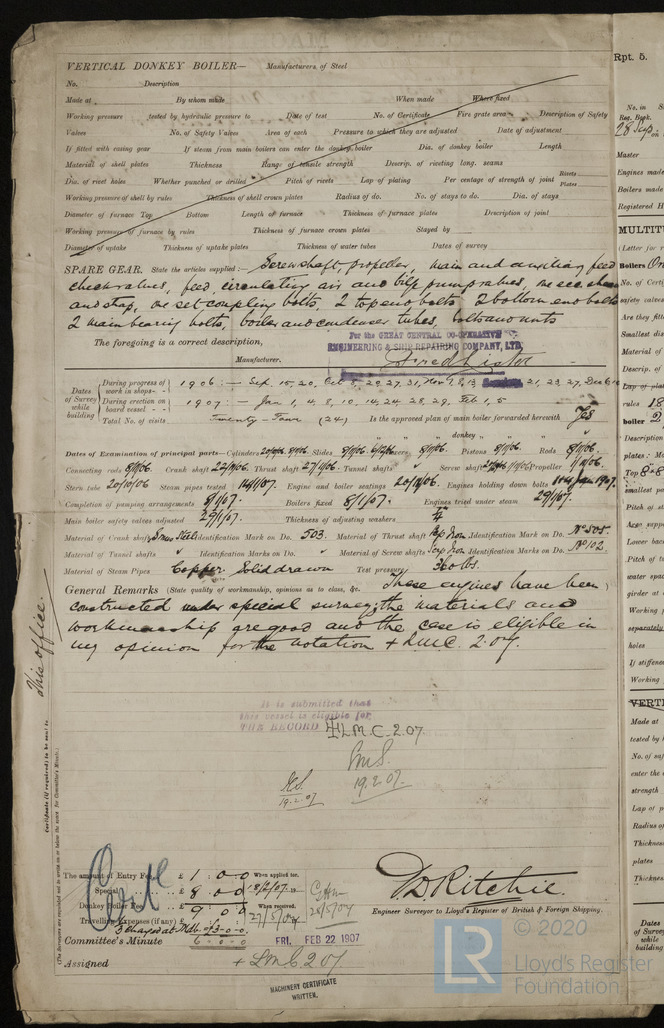 VERTICAL DONKEY BOILER— Manufacturers of Steel
No. Description
Made at By whom made When made Where fixed
Working pressure tested by hydraulic pressure to Date of test No. of Certificate Fire grate area Description of Safety
Valves No. of Safety Valves Area of each Pressure to which they are adjusted Date of adjustment
If fitted with easing gear If steam from main boilers can enter the donkey boiler Dia. of donkey boiler Length
Material of shell plates Thickness Range of tensile strength Descrip. of riveting long. seams
Dia. of rivet holes Whether punched or drilled Pitch of rivets Lap of plating Per centage of strength of joint Rivets Plates
Working pressure of shell by rules Thickness of shell crown plates Radius of do. No. of stays to do. Dia. of stays
Diameter of furnace Top Bottom Length of furnace Thickness of furnace plates Description of joint
Working pressure of furnace by rules Thickness of furnace crown plates Stayed by
Diameter of uptake Thickness of uptake plates Thickness of water tubes Dates of survey
SPARE GEAR. State the articles supplied:— Screwshaft, propeller, main and auxiliary feed
check valves, feed, circulating air and bilge pump valves, one ecc. sheave
and strap, one set coupling bolts, 2 top end bolts 2 bottom end bolts
2 main bearing bolts, boiler and condenser tubes, bolts and nuts
The foregoing is a correct description,
For the GREAT CENTRAL CO-OPERATIVE
ENGINEERING & SHIP REPAIRING COMPANY, LTD.
Manufacturer.
Dates of Survey while building
During progress of work in shops - - 1906:— Sep. 15, 20, Oct 5, 20, 27, 31, Nov 7, 8, 13, 21, 23, 27, Dec 6, 10
During erection on board vessel - - - 1907:— Jan 1, 4, 8, 10, 14, 24, 28, 29, Feb 1, 5
Total No. of visits Twenty-Four (24) Is the approved plan of main boiler forwarded herewith Yes
" " " donkey " " "
Dates of Examination of principal parts—Cylinders Slides Covers 8/11/06. Pistons 8/11/06. Rods 8/11/06.
Connecting rods 8/11/06. Crank shaft 22/9/06. Thrust shaft 27/11/06. Tunnel shafts " Screw shaft Propeller
Stern tube 20/10/06 Steam pipes tested 14/1/07. Engine and boiler seatings 20/10/06. Engines holding down bolts Jan 1907.
Completion of pumping arrangements 8/1/07. Boilers fixed 8/1/07. Engines tried under steam 29/1/07.
Main boiler safety valves adjusted 29/1/07. Thickness of adjusting washers
Material of Crank shaft Steel Identification Mark on Do. 503. Material of Thrust shaft Iron Identification Mark on Do. No 505.
Material of Tunnel shafts " Identification Marks on Do. " Material of Screw shafts Iron Identification Marks on Do. No 102.
Material of Steam Pipes Copper. Solid drawn Test pressure 360 lbs.
General Remarks (State quality of workmanship, opinions as to class, &c. These engines have been
constructed under special survey; the materials and
workmanship are good and the case is eligible in
my opinion for the notation + LMC. 2.07.
It is submitted that
this vessel is eligible for
THE RECORD + L.M.C. 2.07.
19.2.07
19.2.07
This office
Certificate (if required) to be sent to
The amount of Entry Fee .. £ 1 : 0 : 0 When applied for.
Special .. .. £ 8 : 0 : 0 18/2/07.
Donkey Boiler Fee .. .. £ When received.
9 : 0 : 0
Travelling Expenses (if any) £ 27/5/07
28/5/07
Engineer Surveyor to Lloyd's Register of British & Foreign Shipping.
D Ritchie.
Committee's Minute 6 – 0 – 0 FRI. FEB 22 1907
Assigned + LMC 2 07
MACHINERY CERTIFICATE
WRITTEN.
© 2020
LR
Lloyd's Register
Foundation
Rpt. 5.
No. in
Reg. Book.
28 Sup.
Master
Engines made
Boilers made
Registered H
MULTITU
(Letter for r
Boilers
No. of Certi
safety valves
Are they fitt
Smallest dis
Material of
Descrip. of
Lap of plat
rules 18
boiler 2
Description
plates: Ma
Top
smallest pa
Pitch of st
Area suppo
Lower back
Pitch of tu
water spac
girder at
Working
separately
holes
If stiffene
Working
VERTI
Made at
tested by h
No. of saf
enter the
strength
Lap of p
Radius of
Thickness
plates
Thickness
Dates
of Survey
while
building